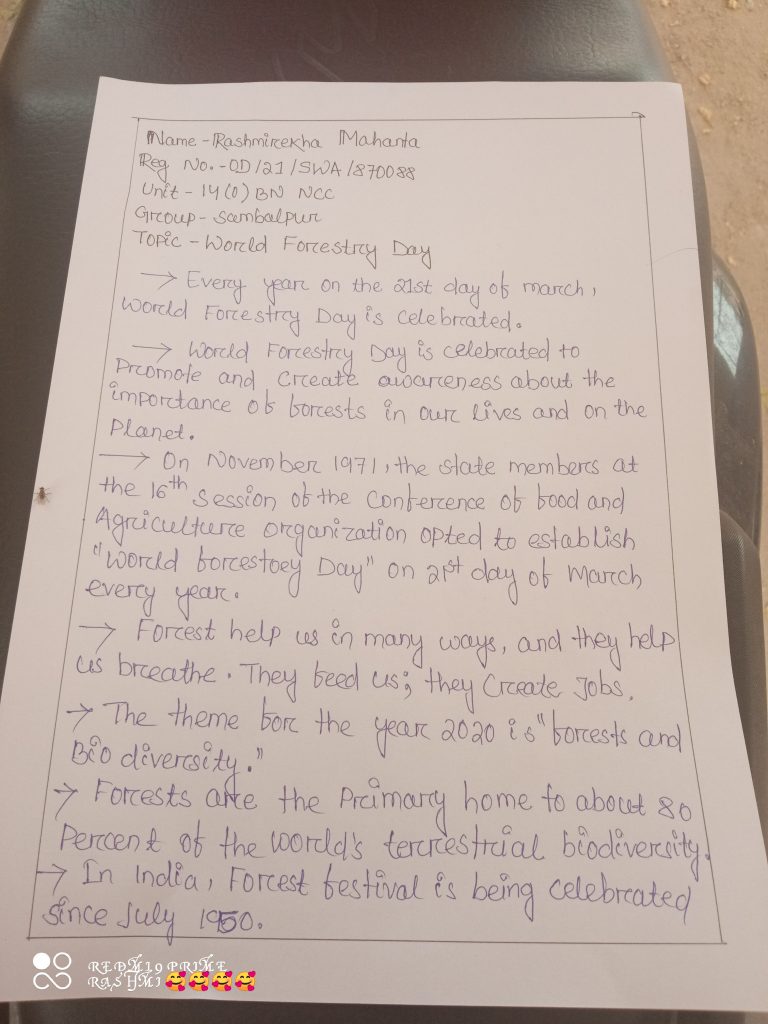 Name - Rashmirekha Mahanta
Reg No. - OD/21/SWA/870088
Unit - 14(O) BN NCC
Group - Sambalpur
Topic - World Forestry Day
→ Every year on the 21st day of march,
World Forestry Day is celebrated.
→ World Forestry Day is celebrated to
Promote and Create awareness about the
importance of forests in our lives and on the
Planet.
→ On November 1971, the state members at
the 16th session of the Conference of food and
Agriculture organization opted to establish
"World forestoey Day" on 21st day of March
every year.
→ Forest help us in many ways, and they help
us breathe. They feed us; they Create Jobs.
→ The theme for the year 2020 is "forests and
Bio diversity."
→ Forests are the Primary home to about 80
Percent of the world's terrestrial biodiversity.
→ In India, Forest festival is being celebrated
since July 1950.
REDMI 9 PRIME
RASHMI 🥰🥰🥰🥰